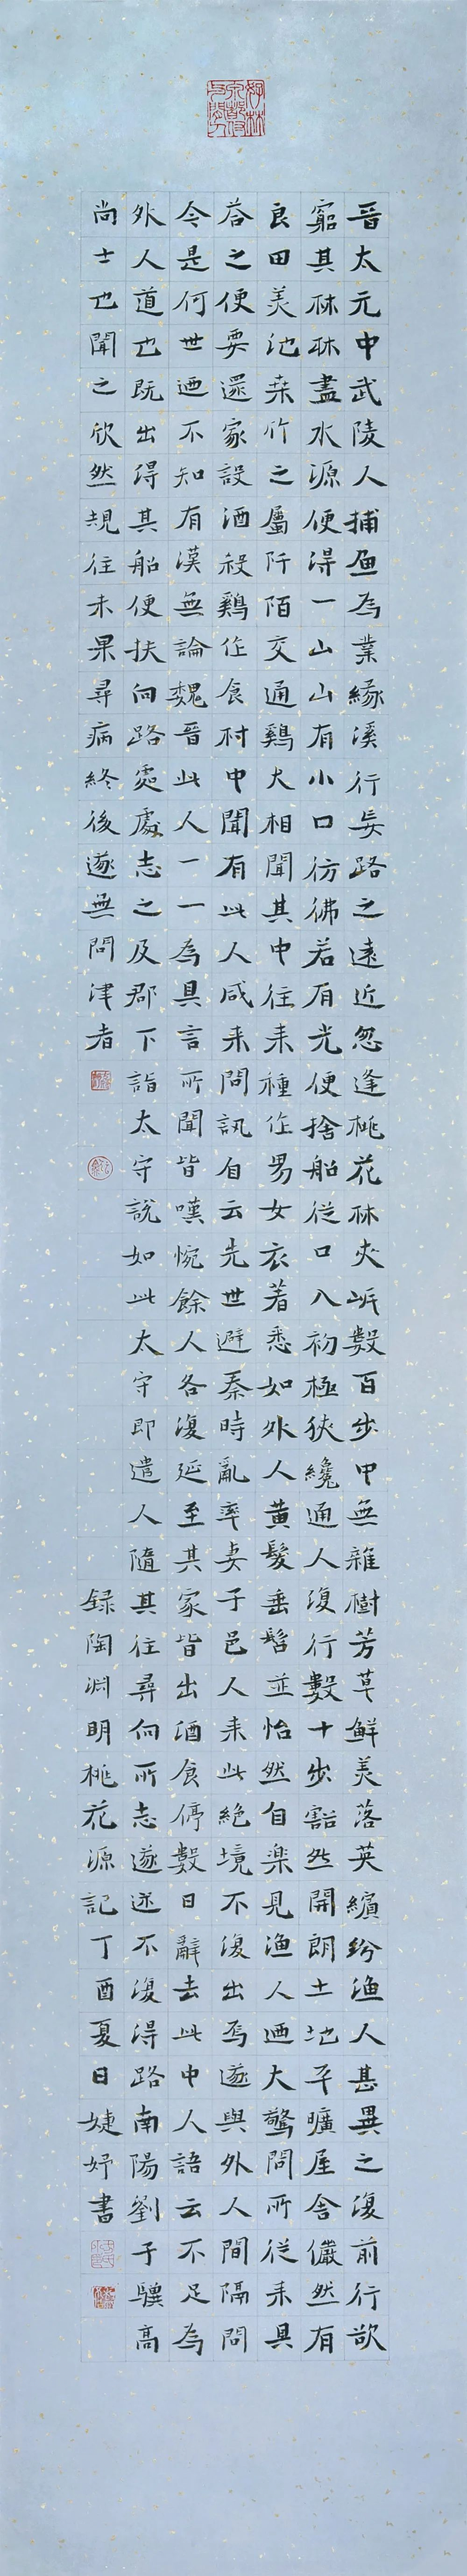 晉太元中武陵人捕魚為業緣溪行忘路之遠近忽逢桃花林夾岸數百步中無雜樹芳草鮮美落英繽紛漁人甚異之復前行欲
窮其林林盡水源便得一山山有小口彷彿若有光便捨船從口入初極狹纔通人復行數十步豁然開朗土地平曠屋舍儼然有
良田美池桑竹之屬阡陌交通鷄犬相聞其中往来種作男女衣著悉如外人黃髮垂髫並怡然自楽見漁人迺大驚問所從来具
荅之便要還家設酒殺鷄作食村中聞有此人咸来問訊自云先世避秦時亂率妻子邑人来此絕境不復出焉遂與外人間隔問
今是何世迺不知有漢無論魏晉此人一一為具言所聞皆嘆惋餘人各復延至其家皆出酒食停數日辭去此中人語云不足為
外人道也既出得其船便扶向路處處志之及郡下詣太守說如此太守即遣人隨其往尋向所志遂迷不復得路南陽劉子驥高
尚士也聞之欣然規往未果尋病終後遂無問津者
録陶淵明桃花源記丁酉夏日婕妤書